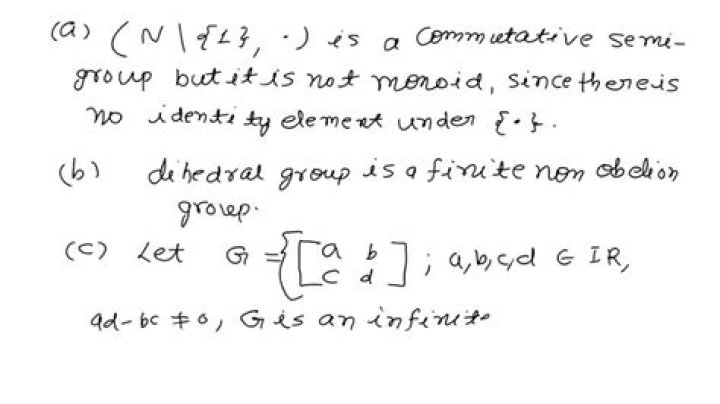 (a) (N \ {1}, ·) is a commutative semi-
group but it is not monoid, since there is
no identity element under {·}.
(b) dihedral group is a finite non abelian
group.
(c) Let G = {[a b
c d] ; a,b,c,d ∈ IR,
ad-bc ≠ 0, G is an infinite